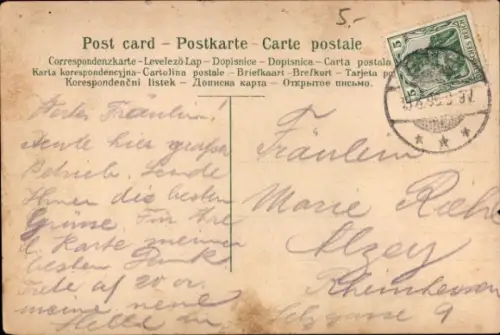 5.-
Post card – Postkarte – Carte postale
Correspondenzkarte - Levelező-Lap - Dopisnice - Dopisnica - Carta postala
Karta korespondencyjna - Cartolina postale - Briefkaart - Brefkort - Tarjeta po
Korespondenční lístek - Дописна карта - Открытое письмо.
5
5
Fräulein!
Heute hier großer
Betrieb. Sende
Ihnen die besten
Grüsse. Für Ihre
l. Karte meinen
besten Dank
meine neue
Fräulein
Marie
Alzey
Rheinhessen
Selzgasse 9